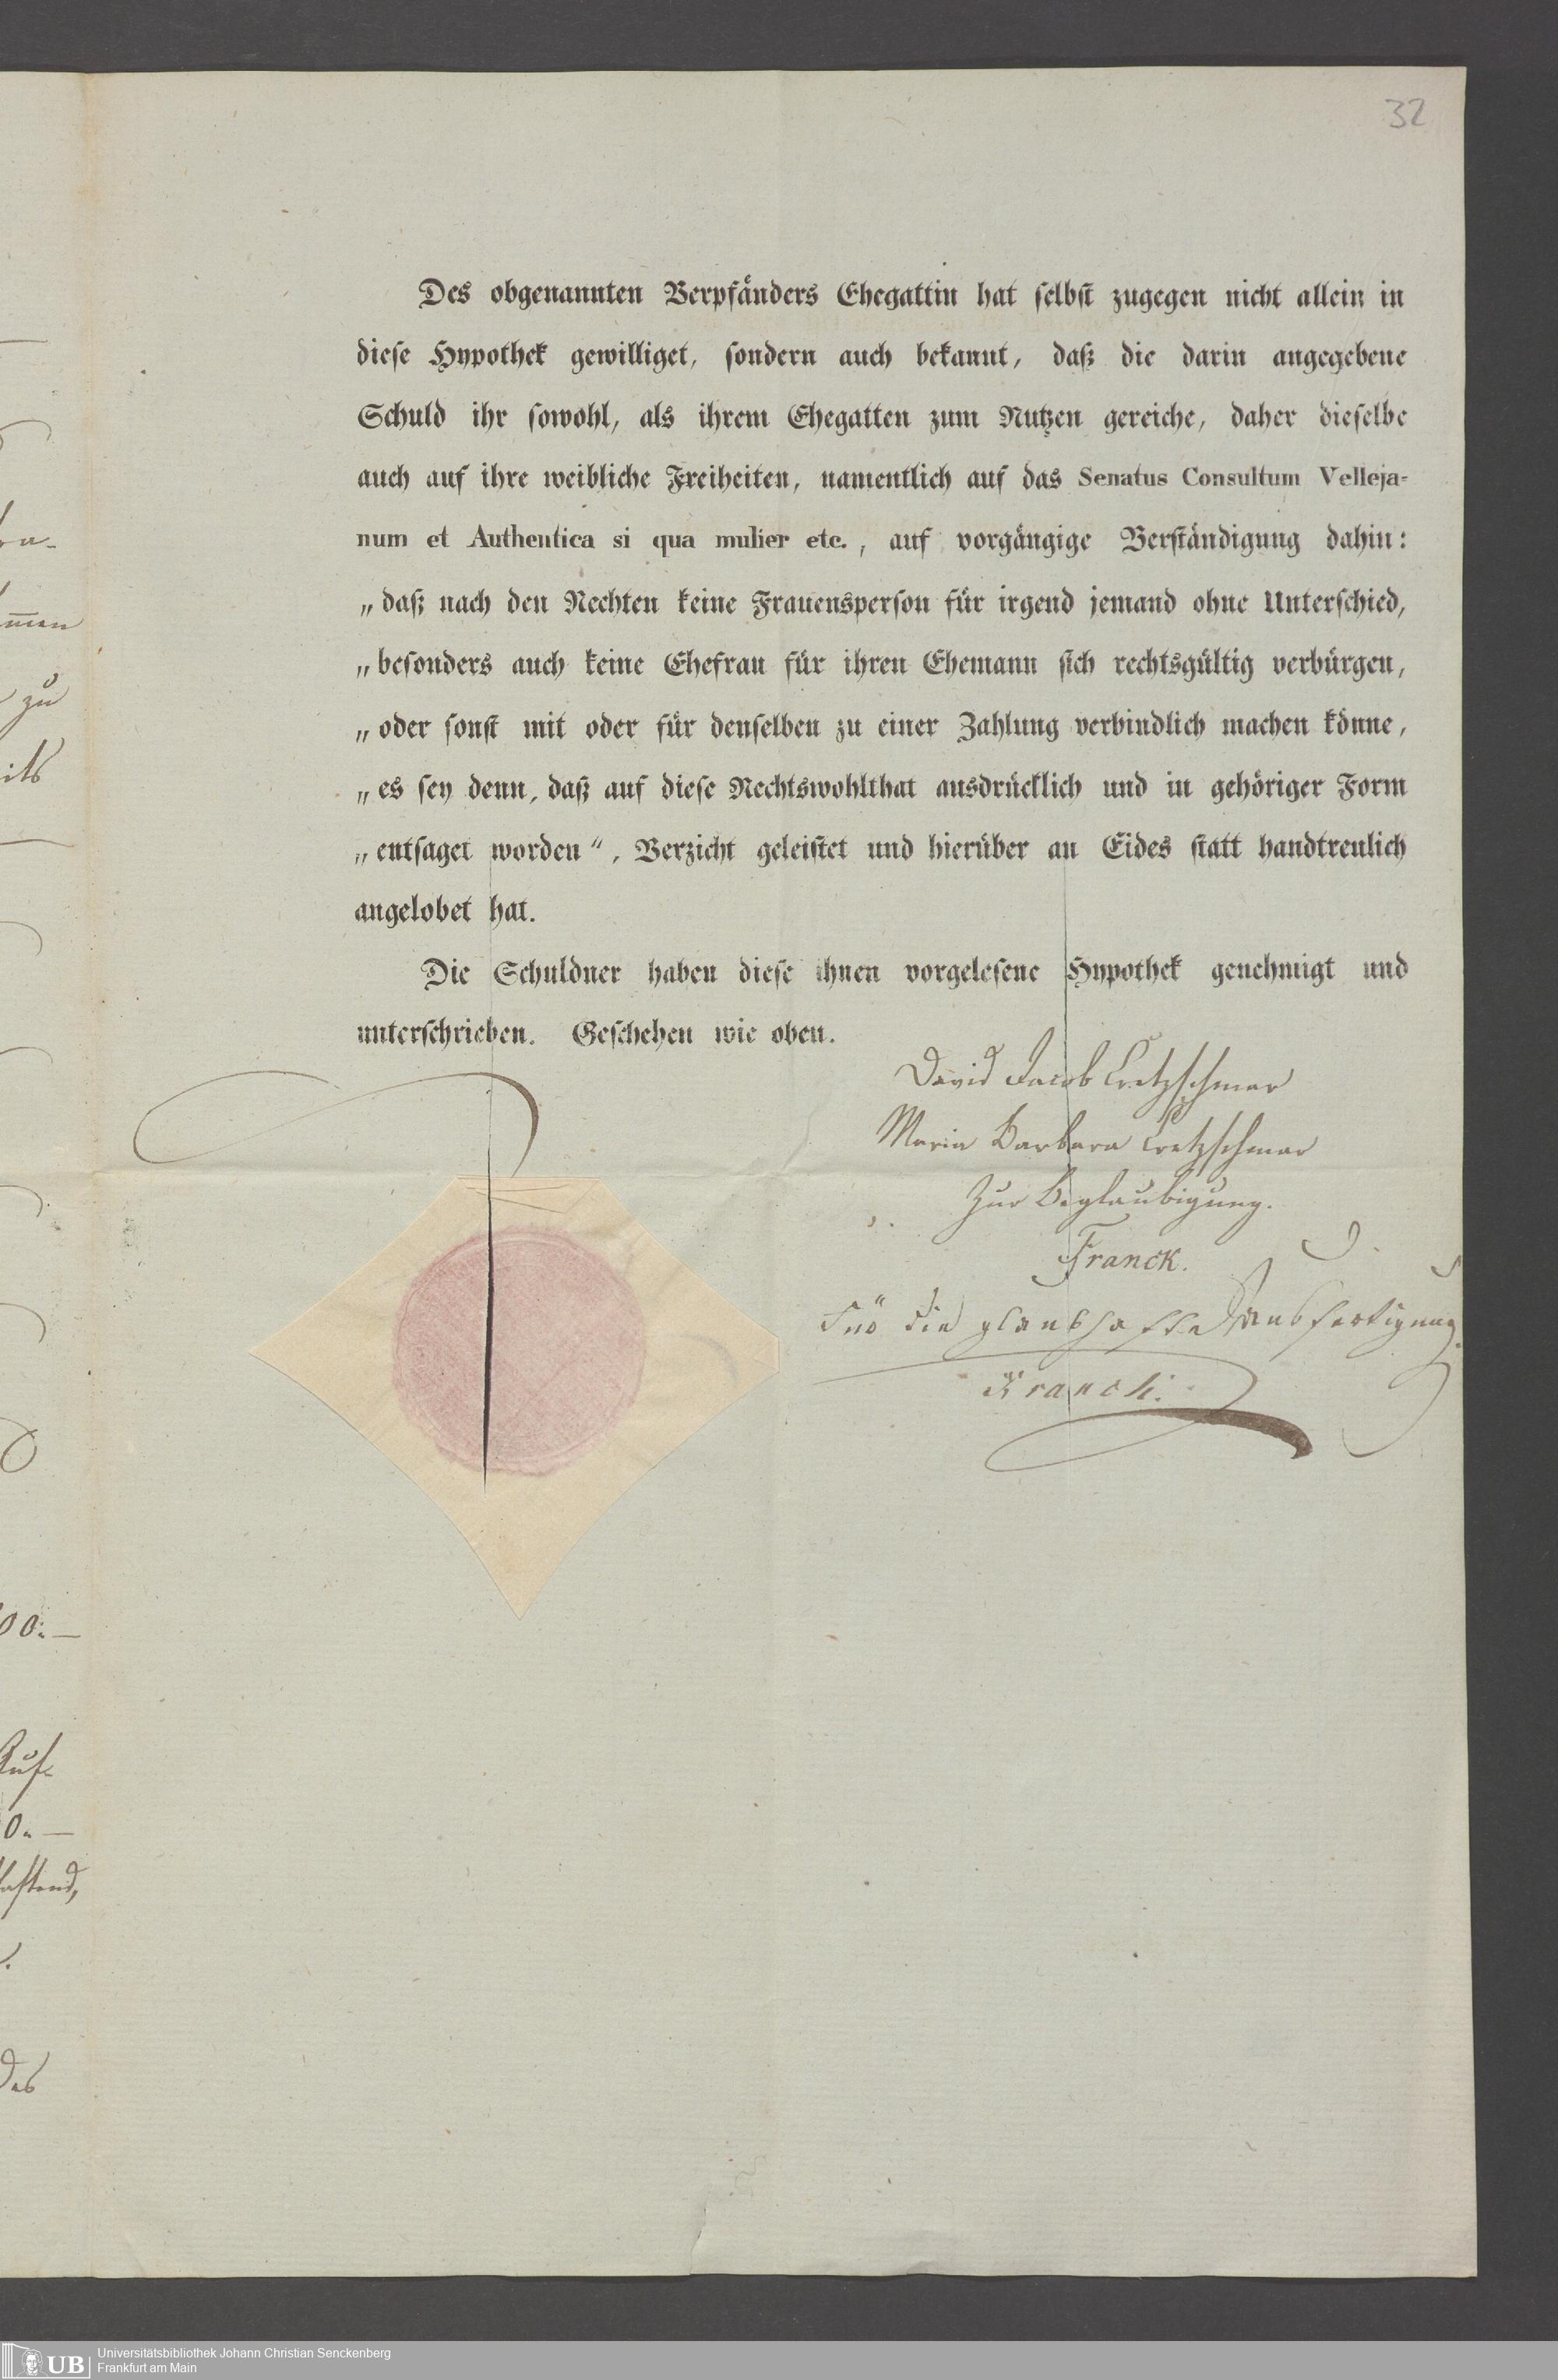 32
Des obgenannten Verpfänders Ehegattin hat selbst zugegen nicht allein in
diese Hypothek gewilliget, sondern auch bekannt, daß die darin angegebene
Schuld ihr sowohl, als ihrem Ehegatten zum Nutzen gereiche, daher dieselbe
auch auf ihre weibliche Freiheiten, namentlich auf das Senatus Consultum Velleja-
num et Authentica si qua mulier etc., auf vorgängige Verständigung dahin:
„daß nach den Rechten keine Frauensperson für irgend jemand ohne Unterschied,
„besonders auch keine Ehefrau für ihren Ehemann sich rechtsgültig verbürgen,
„oder sonst mit oder für denselben zu einer Zahlung verbindlich machen könne,
„es sey denn, daß auf diese Rechtswohlthat ausdrücklich und in gehöriger Form
„entsaget worden“, Verzicht geleistet und hierüber an Eides statt handtreulich
angelobet hat.
Die Schuldner haben diese ihnen vorgelesene Hypothek genehmigt und
unterschrieben. Geschehen wie oben.
David Jacob Cretzschmar
Maria Barbara Cretzschmar
Zur Beglaubigung.
Franck.
Für die glaubhafte Ausfertigung.
Franck.
zu
des
UB Universitätsbibliothek Johann Christian Senckenberg
Frankfurt am Main